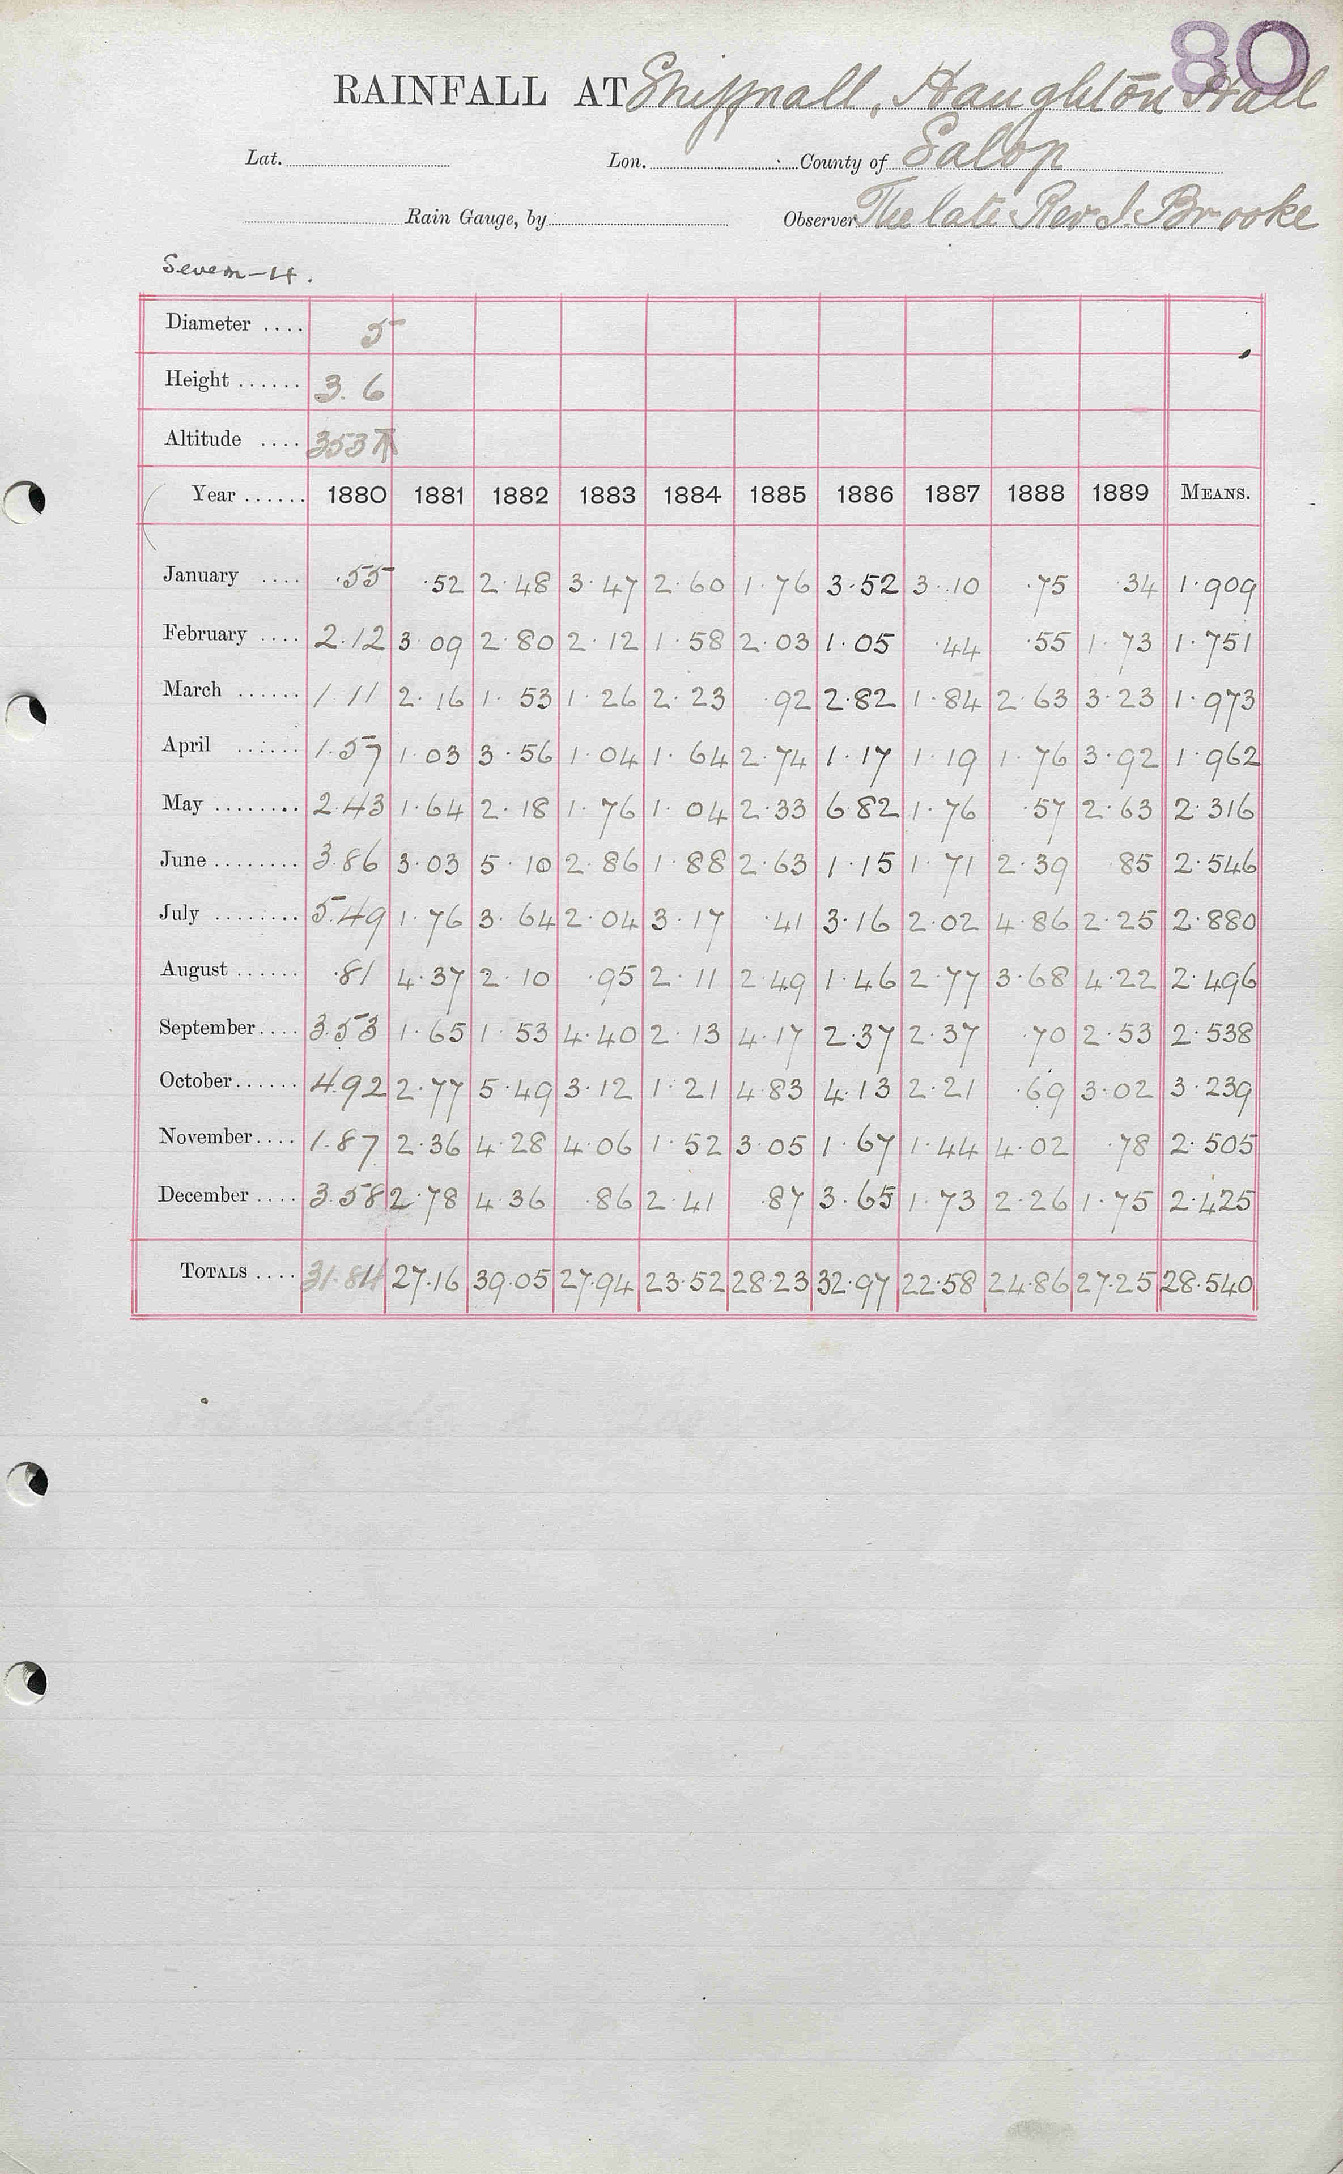 80
RAINFALL AT Shiffnall, Haughton Hall
Lat. Lon. County of Salop
Rain Gauge, by Observer The late Rev J. Brooke
Severn-4.
Diameter .... 5
Height ...... 3. 6
Altitude .... 353 ft
Year ...... 1880 1881 1882 1883 1884 1885 1886 1887 1888 1889 MEANS.
January .... ·55 ·52 2·48 3·47 2·60 1·76 3·52 3·10 ·75 ·34 1·909
February .... 2·12 3·09 2·80 2·12 1·58 2·03 1·05 ·44 ·55 1·73 1·751
March ...... 1·11 2·16 1·53 1·26 2·23 ·92 2·82 1·84 2·63 3·23 1·973
April ...... 1·57 1·03 3·56 1·04 1·64 2·74 1·17 1·19 1·76 3·92 1·962
May ........ 2·43 1·64 2·18 1·76 1·04 2·33 6·82 1·76 ·57 2·63 2·316
June ........ 3·86 3·03 5·10 2·86 1·88 2·63 1·15 1·71 2·39 ·85 2·546
July ........ 5·49 1·76 3·64 2·04 3·17 ·41 3·16 2·02 4·86 2·25 2·880
August ...... ·81 4·37 2·10 ·95 2·11 2·49 1·46 2·77 3·68 4·22 2·496
September.... 3·53 1·65 1·53 4·40 2·13 4·17 2·37 2·37 ·70 2·53 2·538
October...... 4·92 2·77 5·49 3·12 1·21 4·83 4·13 2·21 ·69 3·02 3·239
November.... 1·87 2·36 4·28 4·06 1·52 3·05 1·67 1·44 4·02 ·78 2·505
December .... 3·58 2·78 4·36 ·86 2·41 ·87 3·65 1·73 2·26 1·75 2·425
TOTALS .... 31·84 27·16 39·05 27·94 23·52 28·23 32·97 22·58 24·86 27·25 28·540